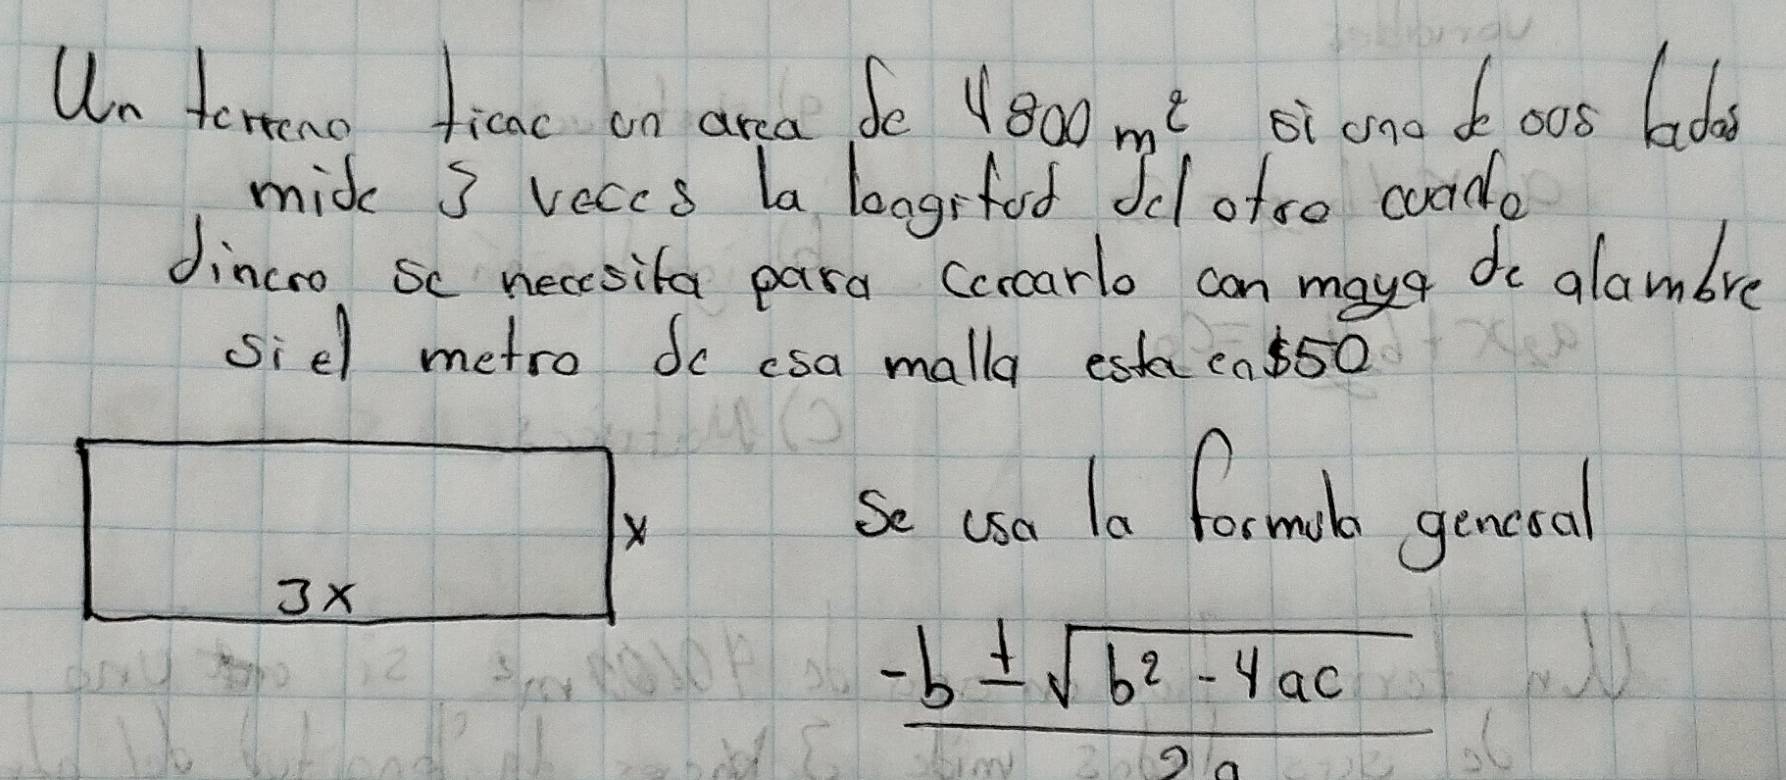 Un terreno tiene un area de 4800 m² si uno de sus lados
mide 3 veces la longitud del otro cuanto
dinero se necesita para cercarlo con maya de alambre
si el metro de esa malla esta en $50
x
3x
Se usa la formula general
-b ± √b² - 4ac
2a